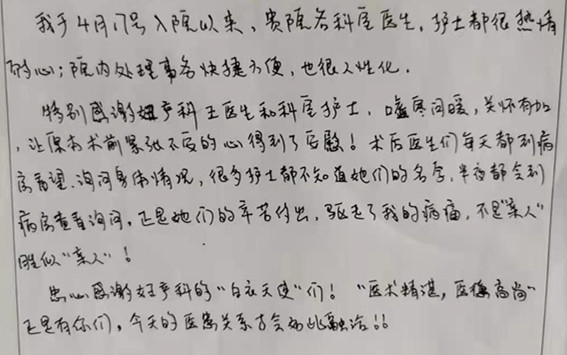 我于4月17号入院以来，贵院各科室医生，护士都很热情
耐心；院内处理事务快捷方便，也很人性化．
特别感谢妇产科王医生和科室护士，嘘寒问暖，关怀有加
，让原本术前紧张不安的心得到了安慰！术后医生们每天都到病
房看望、询问身体情况，很多护士都不知道她们的名字，半夜都会到
病房查看询问，正是她们的辛苦付出，驱走了我的病痛，不是“亲人”
胜似“亲人”！
忠心感谢妇产科的“白衣天使”们！“医术精湛，医德高尚”
正是有你们，今天的医患关系才会如此融洽！！